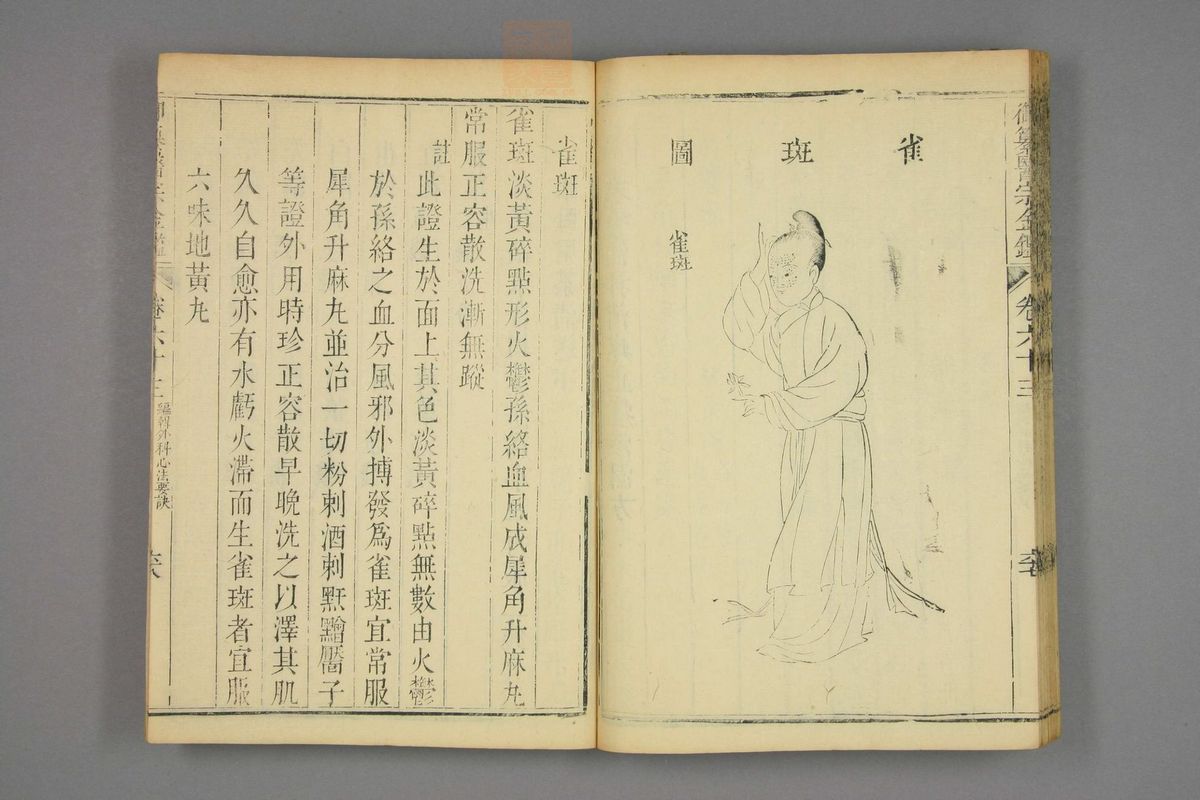 雀斑圖
雀斑
御纂醫宗金鑑 卷六十三
雀斑
雀斑淡黃碎點形火鬱孫絡血風成犀角升麻丸
常服正容散洗漸無蹤
註此證生於面上其色淡黃碎點無數由火鬱
於孫絡之血分風邪外搏發爲雀斑宜常服
犀角升麻丸並治一切粉刺酒刺䵟黯靨子
等證外用時珍正容散早晚洗之以澤其肌
久久自愈亦有水虧火滯而生雀斑者宜服
六味地黃丸
編輯外科心法要訣